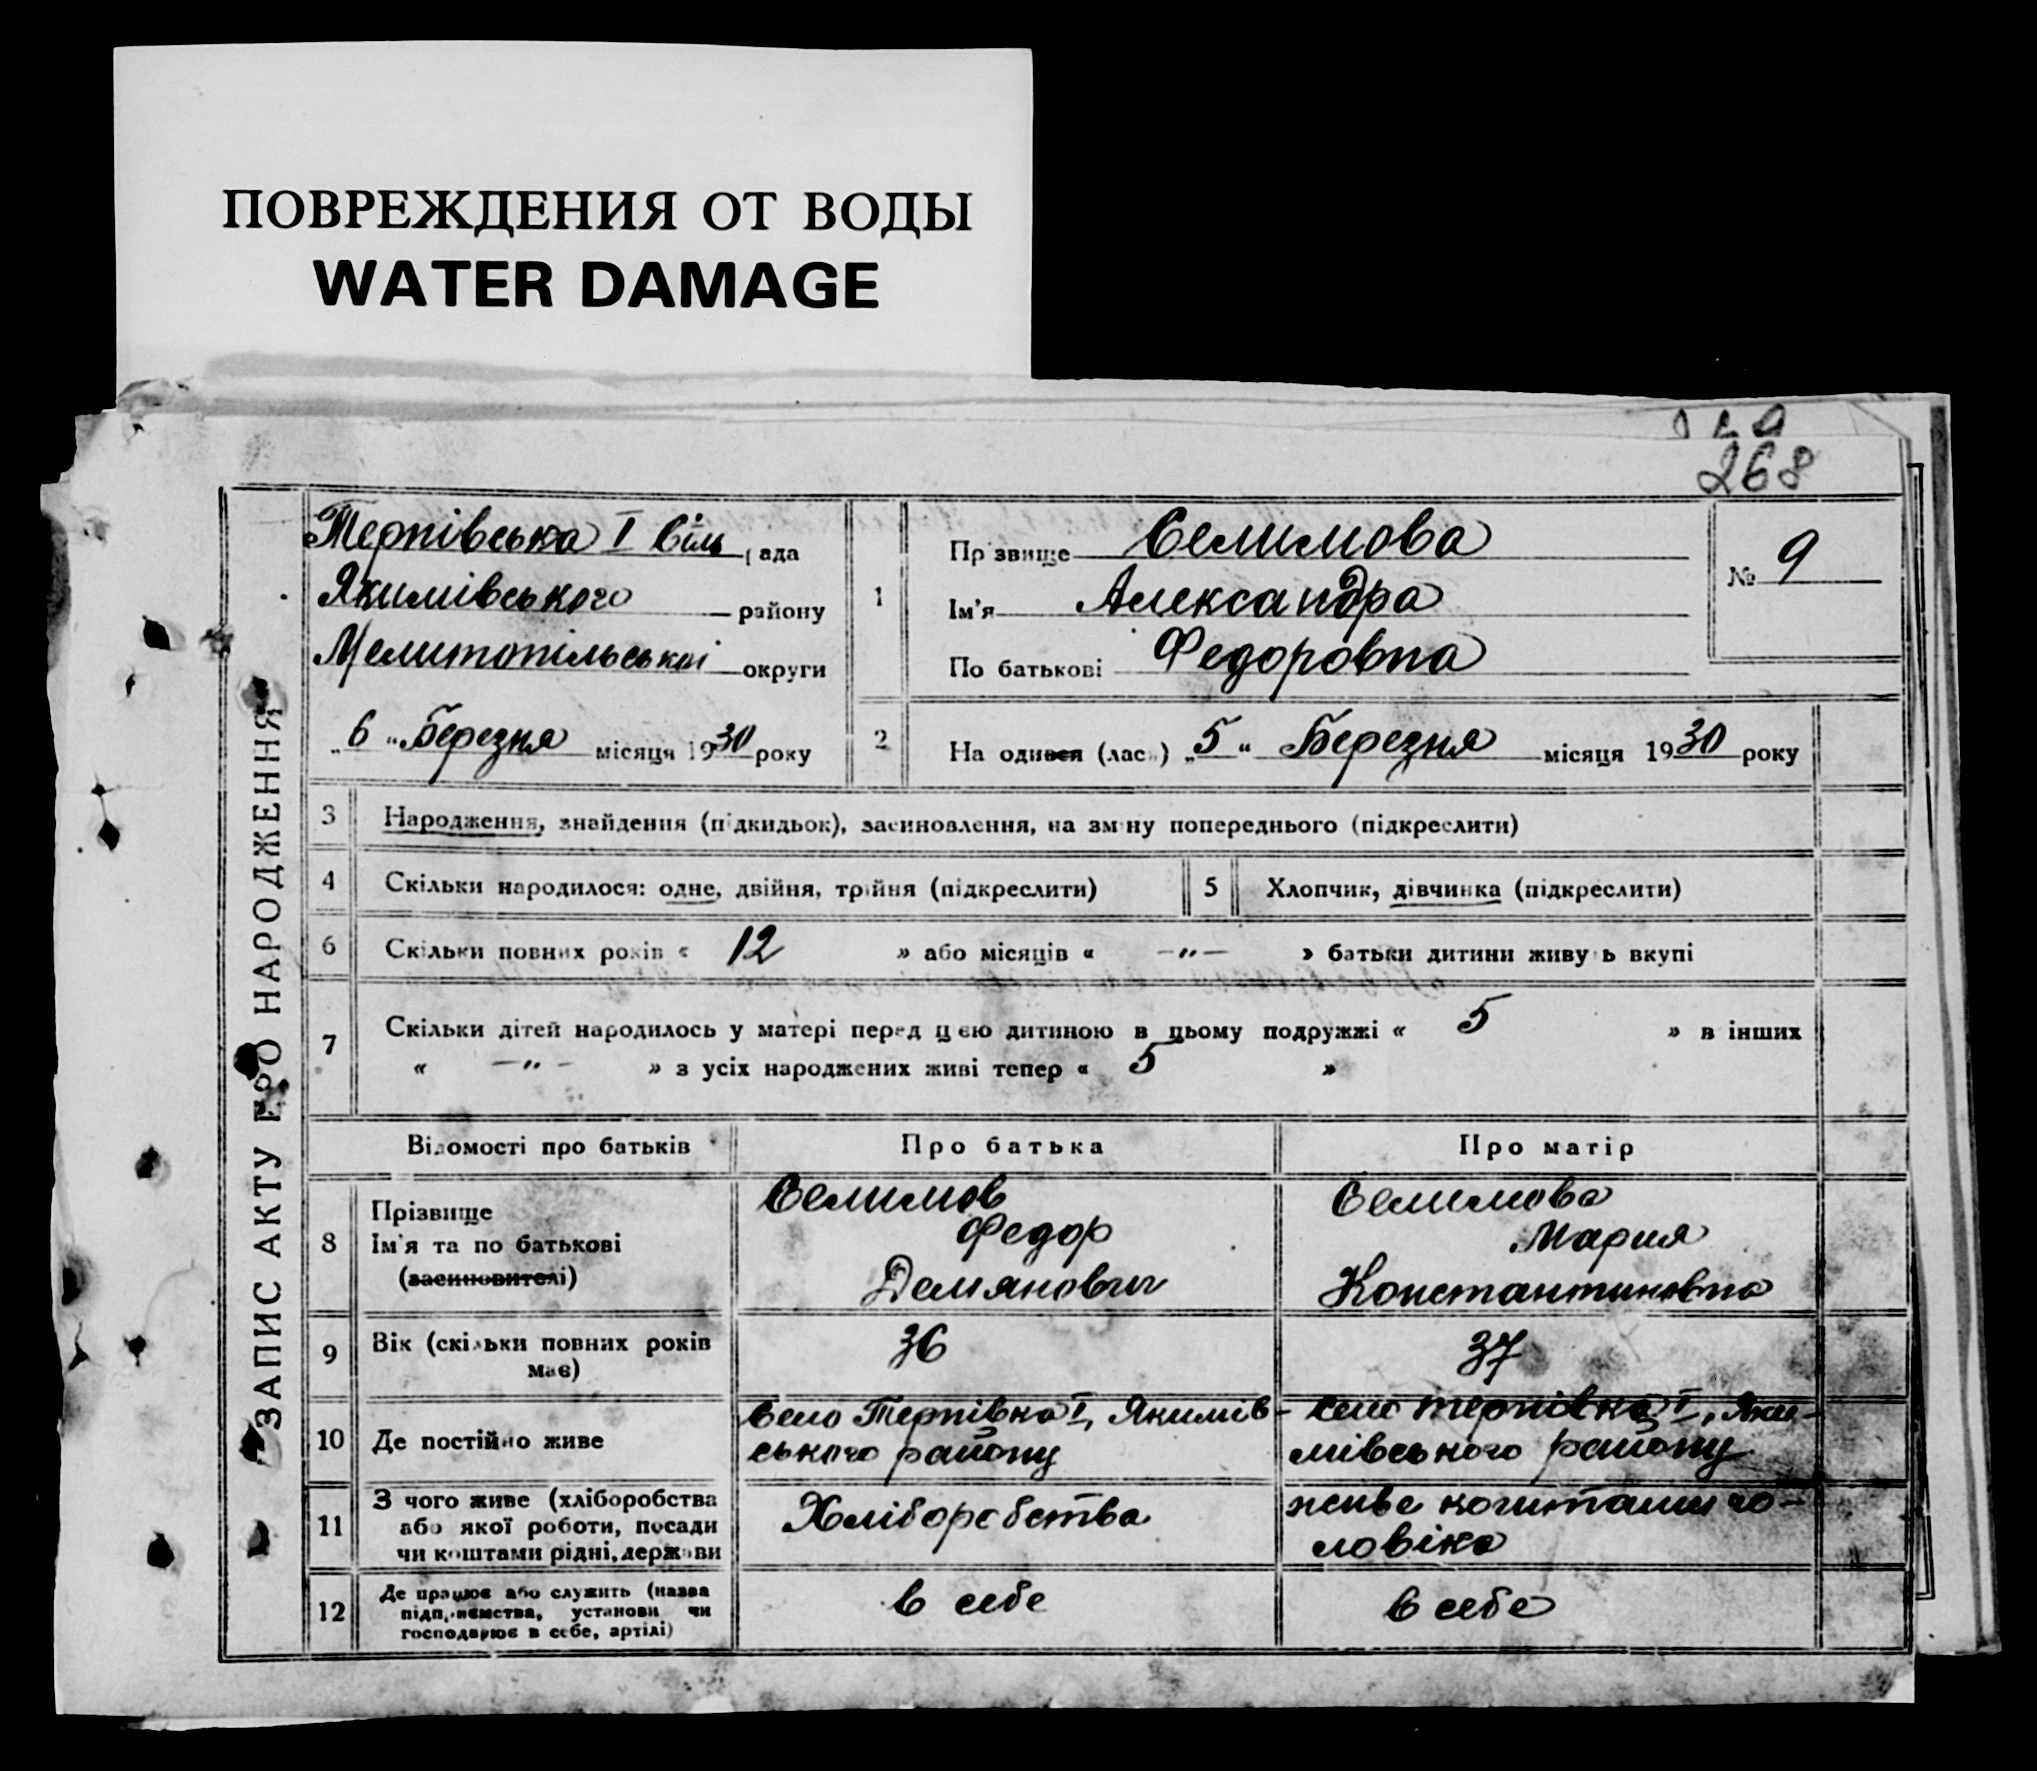 ПОВРЕЖДЕНИЯ ОТ ВОДЫ
WATER DAMAGE
268
ЗАПИС АКТУ ПРО НАРОДЖЕННЯ
Терпівська I Сіль рада
Якимівського району
Мелитопільської округи
„6“ Березня місяця 1930 року
1
Прізвище Селимова
Ім'я Александра
По батькові Федоровна
№ 9
2
На одився (лас ) „5“ Березня місяця 1930 року
3 Народження, знайдення (підкидьок), засиновлення, на зміну попереднього (підкреслити)
4 Скільки народилося: одне, двійня, трійня (підкреслити) 5 Хлопчик, дівчинка (підкреслити)
6 Скільки повних років « 12 » або місяців « —"— » батьки дитини живуть вкупі
7 Скільки дітей народилось у матері перед цією дитиною в цьому подружжі « 5 » в інших
« —"— » з усіх народжених живі тепер « 5 »
Відомості про батьків Про батька Про матір
8 Прізвище
Ім'я та по батькові
(засиновителі)
Селимов
Федор
Демянович
Селимова
Мария
Константиновна
9 Вік (скільки повних років
має)
36
37
10 Де постійно живе
Село Терпівка I, Якимів-
ського району
Село Терпівка I, Яки-
мівського району
11 З чого живе (хліборобства
або якої роботи, посади
чи коштами рідні, держави
Хліборобства
живе коштами чо-
ловіка
12 Де працює або служить (назва
підприємства, установи чи
господарює в себе, артілі)
в себе
в себе